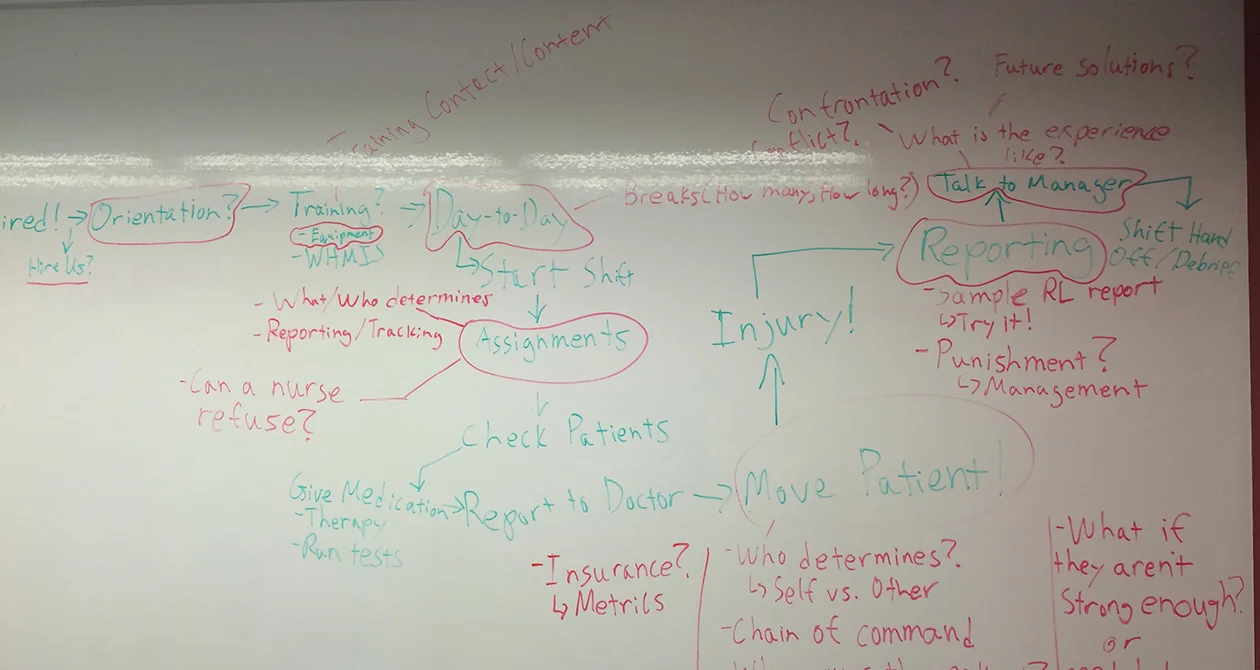 Training Contact/Content
Confrontation?
Conflict?
Future Solutions?
What is the experience
like?
ired! → Orientation? → Training? → Day-to-Day
Hire Us?
- Equipment
- WHMIS
Breaks (How many, How long?)
Talk to Manager
Shift Hand
Off/Debrief
↳ Start Shift
- What/Who determines
- Reporting/Tracking
Assignments
- Can a nurse
refuse?
Check Patients
Give Medication → Report to Doctor → Move Patient!
- Therapy
- Run tests
Injury!
Reporting
- Sample RL report
↳ Try it!
- Punishment?
↳ Management
- Insurance?
↳ Metrics
- Who determines?
↳ Self vs. Other
- Chain of command
- What if
they arent
Strong enough?
or